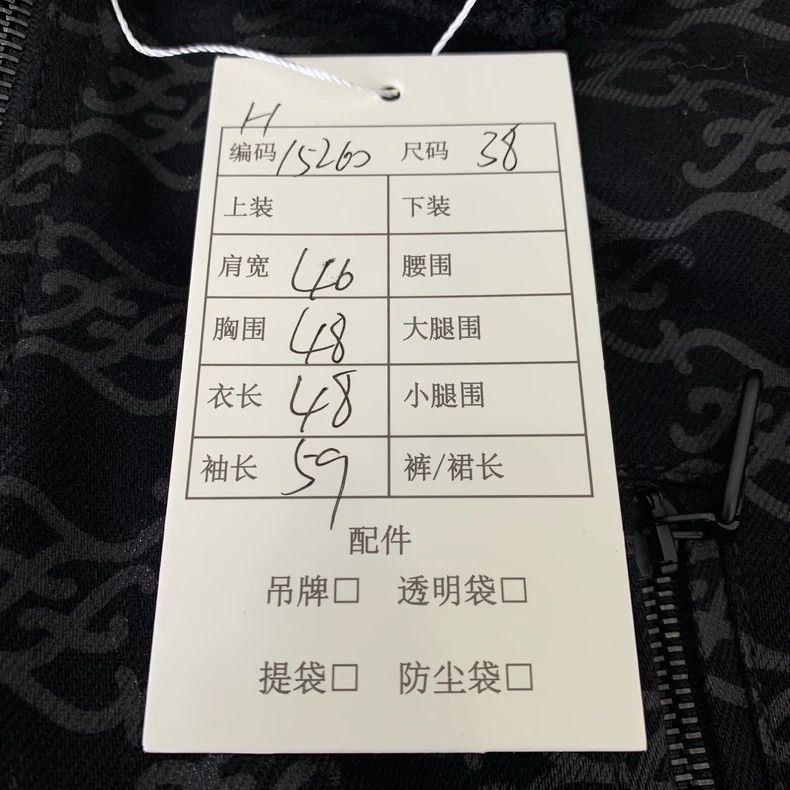 H
编码 15260 尺码 38
上装 下装
肩宽 46 腰围
胸围 48 大腿围
衣长 48 小腿围
袖长 59 裤/裙长
配件
吊牌□ 透明袋□
提袋□ 防尘袋□